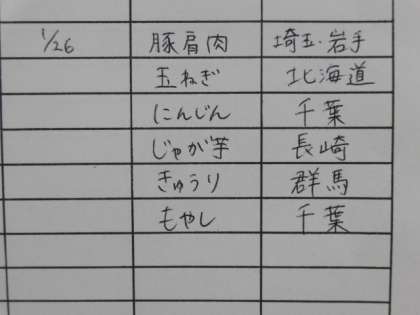 1/26 豚肩肉 埼玉・岩手
玉ねぎ 北海道
にんじん 千葉
じゃが芋 長崎
きゅうり 群馬
もやし 千葉